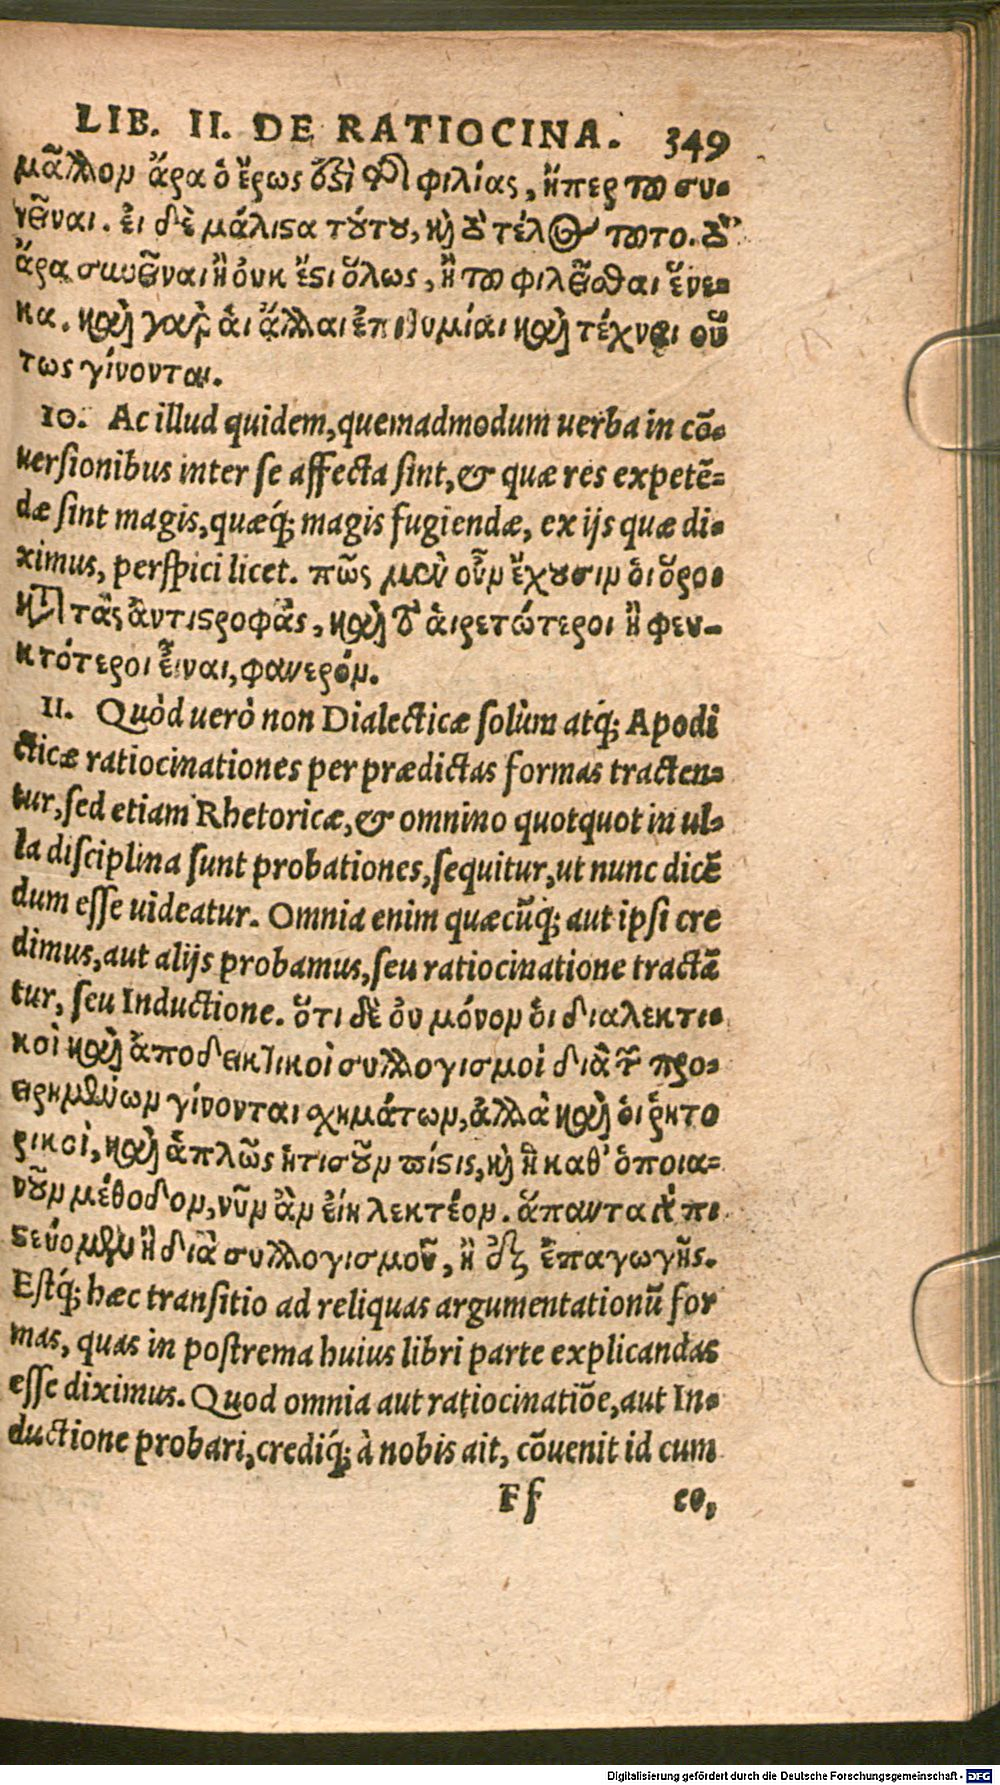 LIB. II. DE RATIOCINA. 349
μᾶλλον ἄρα ὁ ἔρως ἐστὶ τῆς φιλίας, ἤπερ τοῦ συ-
νεῖναι. εἰ δὲ μάλιστα τούτου, καὶ τέλος τοῦτο. τὸ
ἄρα συνεῖναι ἢ οὐκ ἔστι ὅλως, ἢ τοῦ φιλεῖσθαι ἕνε-
κα. καὶ γὰρ ἁι ἄλλαι ἐπιθυμίαι καὶ τέχναι οὕ
τως γίνονται.
10. Ac illud quidem, quemadmodum uerba in cõ-
uersionibus inter se affecta sint, & quæ res expetẽ-
dæ sint magis, quæq́; magis fugiendæ, ex ijs quæ di-
ximus, perspici licet. πῶς μὲν οὖν ἔχουσιν ὁι ὅροι
κατὰ τὰς ἀντιστροφὰς, καὶ τὸ ἁιρετώτεροι ἢ φευ-
κτότεροι εἶναι, φανερόν.
11. Quòd uerò non Dialecticæ solùm atq́; Apodi
cticæ ratiocinationes per prædictas formas tracten-
tur, sed etiam Rhetoricæ, & omnino quotquot in ul-
la disciplina sunt probationes, sequitur, ut nunc dicẽ
dum esse uideatur. Omnia enim quæcũq́; aut ipsi cre
dimus, aut alijs probamus, seu ratiocinatione tractã
tur, seu Inductione. ὅτι δὲ ὀυ μόνον ὁι διαλεκτι-
κοὶ καὶ ἀποδεικτικοὶ συλλογισμοὶ διὰ τῶν προ-
ειρημένων γίνονται σχημάτων, ἀλλὰ καὶ ὁι ῥητο
ρικοὶ, καὶ ἁπλῶς ἡτισοῦν πίστις, καὶ ἡ καθ' ὁποια-
νοῦν μέθοδον, νῦν ἂν εἴη λεκτέον. ἅπαντα γὰρ πι
στεύομεν ἢ διὰ συλλογισμοῦ, ἢ ἐξ ἐπαγωγῆς.
Estq́; hæc transitio ad reliquas argumentationũ for
mas, quas in postrema huius libri parte explicandas
esse diximus. Quod omnia aut ratiocinatiõe, aut In-
ductione probari, crediq́; à nobis ait, cõuenit id cum
Ff eo,
Digitalisierung gefördert durch die Deutsche Forschungsgemeinschaft - DFG